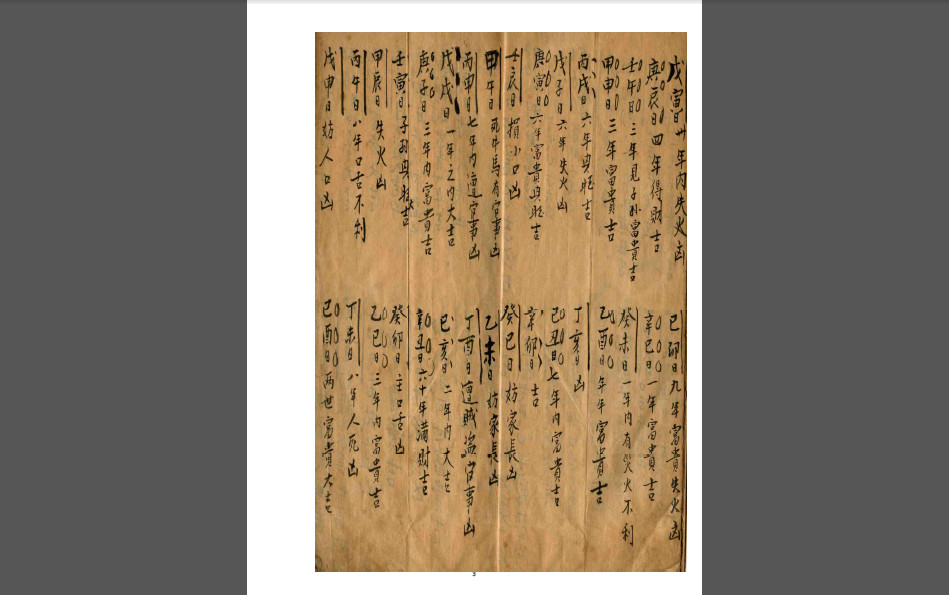 戊寅日卅年内失火凶
庚辰日四年得財吉
壬午日三年見子孙富貴吉
甲申日三年富貴吉
丙戌日六年興旺吉
戊子日六年失火凶
庚寅日六年富貴興旺吉
壬辰日損小口凶
甲午日死牛馬有官事凶
丙申日七年内遭官事凶
戊戌日一年之内大吉
庚子日三年内富貴吉
壬寅日子孙興旺吉
甲辰日失火凶
丙午日八年口舌不利
戊申日妨人口凶
己卯日九年富貴失火凶
辛巳日一年富貴吉
癸未日一年内有災火不利
乙酉日年年富貴吉
丁亥日凶
己丑日七年内富貴吉
辛卯日吉
癸巳日妨家長凶
乙未日妨家長凶
丁酉日遭賊盗官事凶
己亥日二年内大吉
辛丑日六十年满財吉
癸卯日主口舌凶
乙巳日三年内富貴吉
丁未日八年人死凶
己酉日两世富貴大吉
3